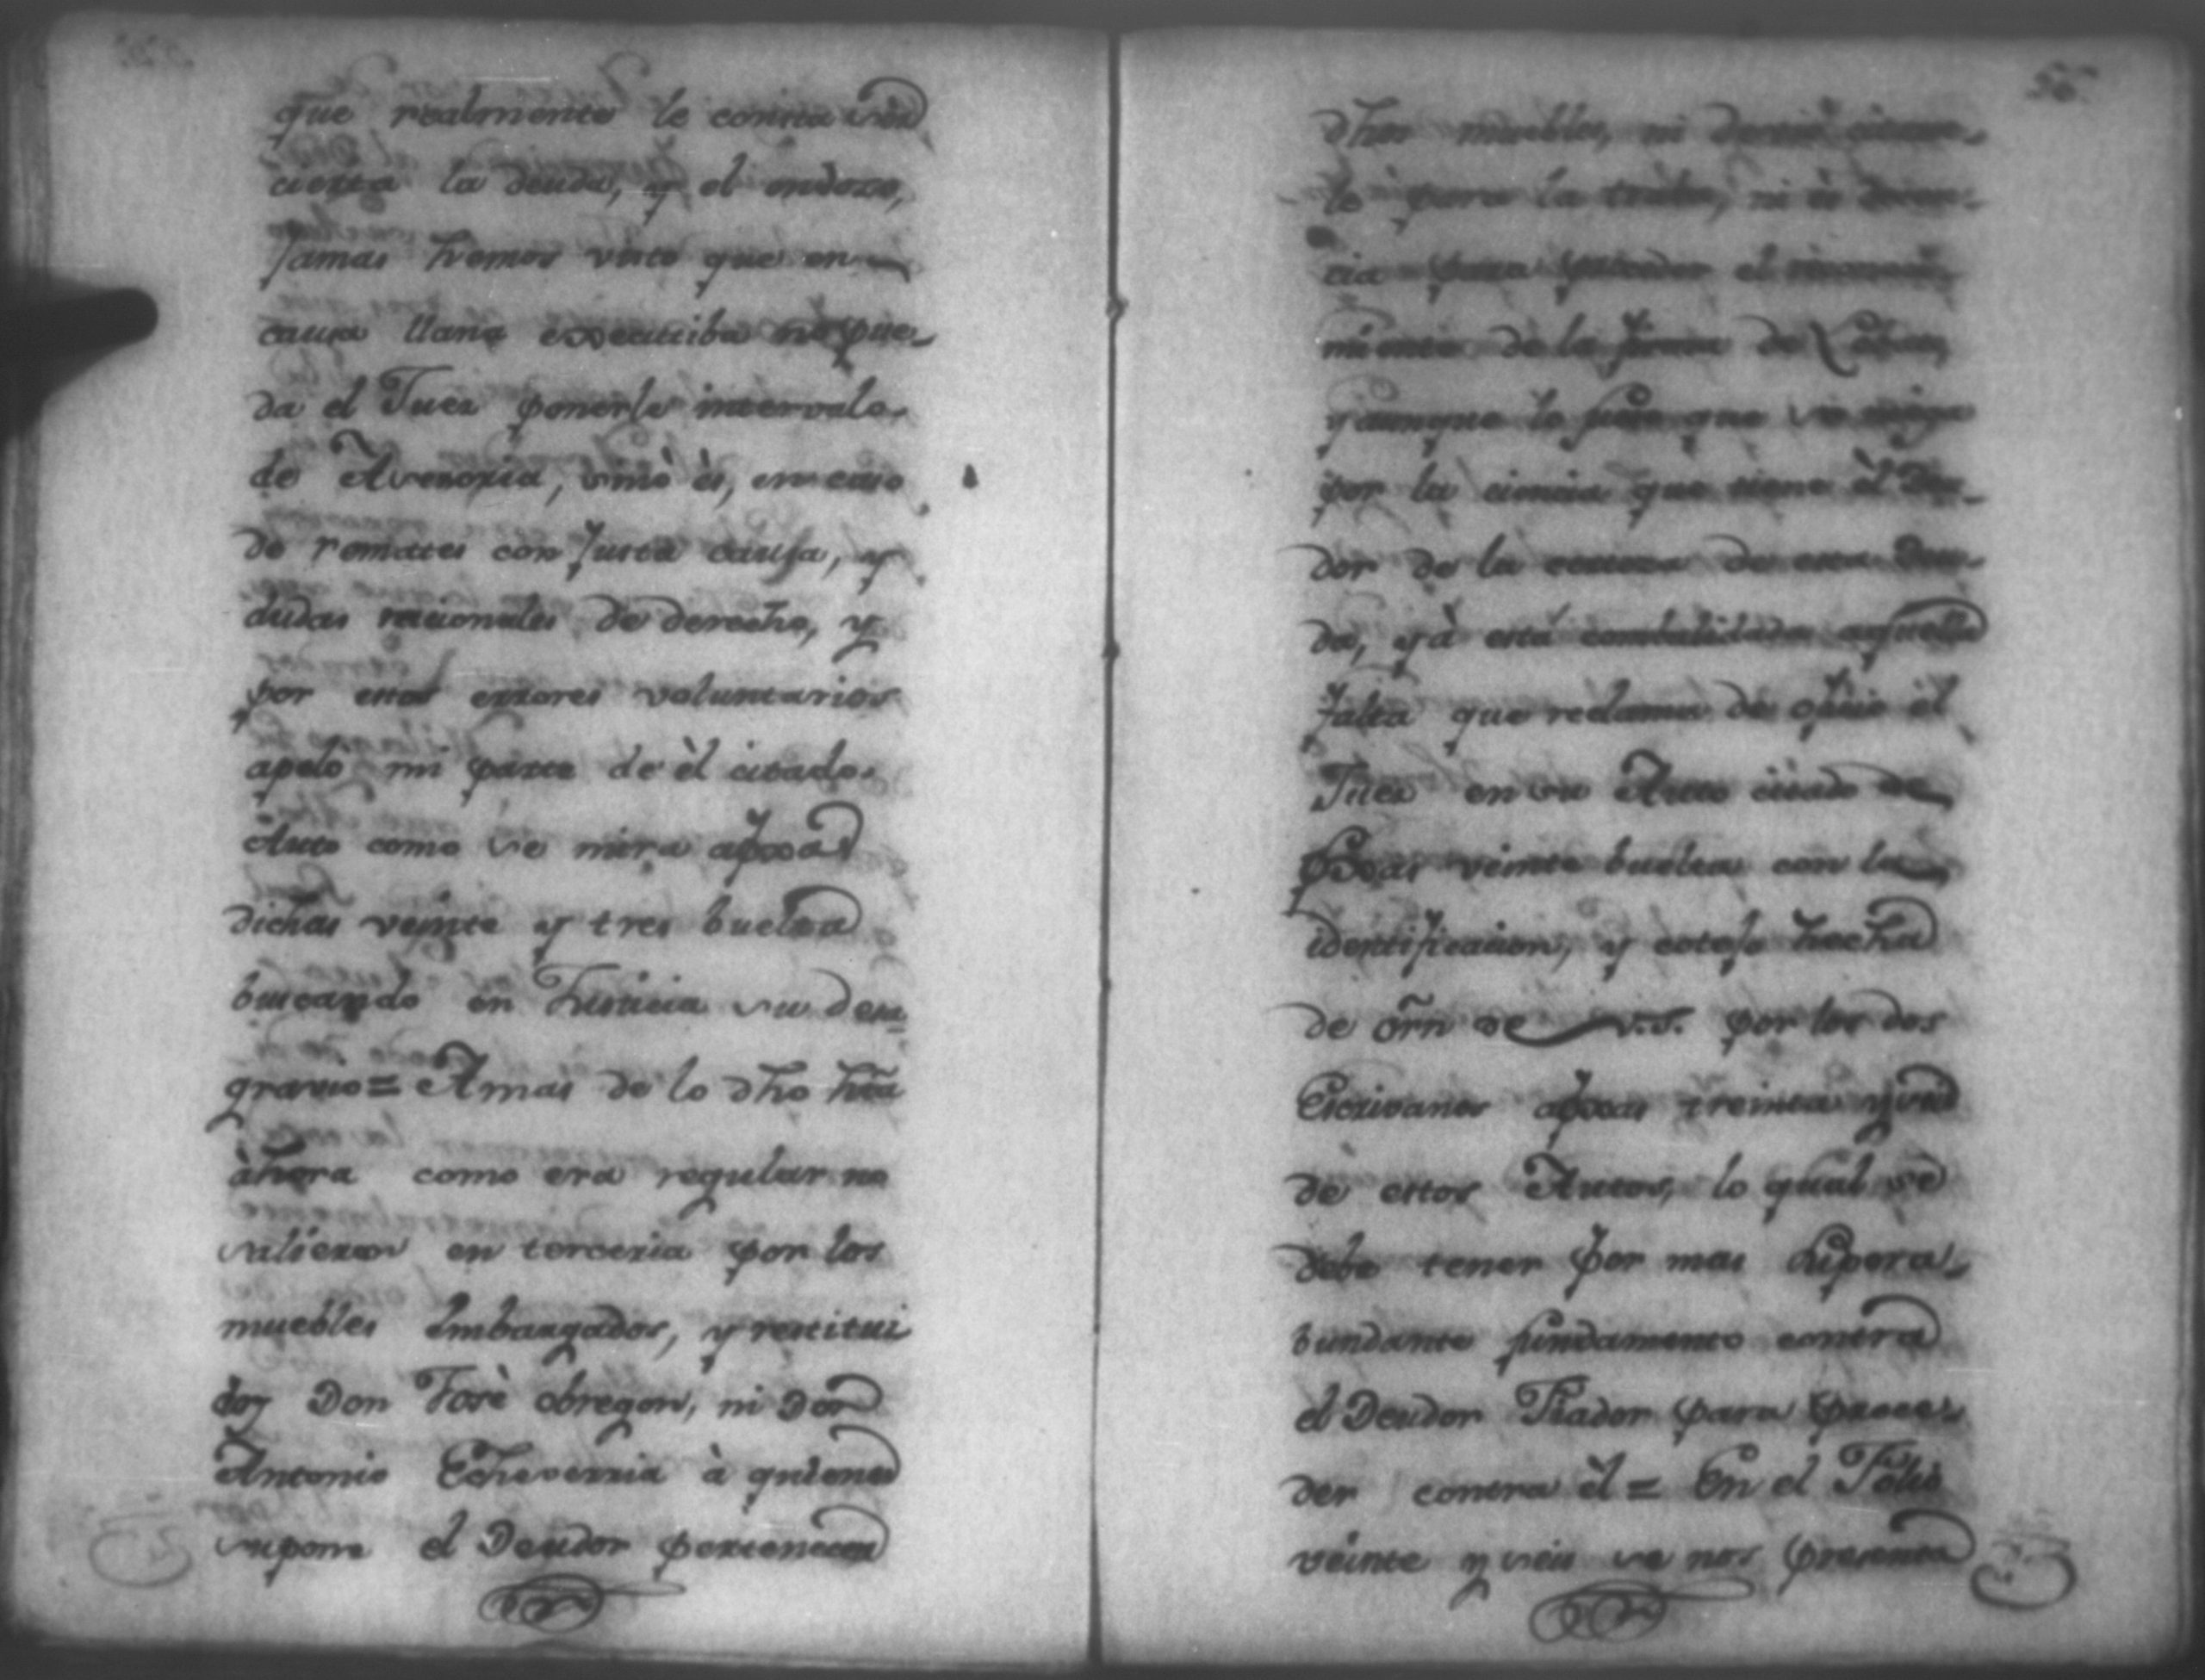 que realmente le consta ser
cierta la deuda, y el endoso,
Jamas hemos visto que en
causa llana executiba no pue-
da el Juez ponerle intervalo
de Asesoria, sinò ès, en caso
de remates con Justa causa, y
dudas racionales de derecho, y
por estos errores voluntarios
apelò mi parte de èl citado
Auto como se mira afoxas
dichas veinte y tres buelta
buscando en Justicia su desa
gravio = Amas de lo dho hta
àhora como era regular no
salieron en terceria por los
muebles Embargados, y restitui
dos Don Josè obregon, ni Don
Antonio Echeverria à quienes
supone el Deudor pertenecen
56.
dhos muebles, ni devia citarse-
le para la traba, ni es
cia para el reconoci-
miento de la firma de
y aunque lo fuese que se niega
por la ciencia que tiene èl Deu-
dor de la certeza de esta Deu-
da, yà està combalidada aquella
falta que reclama de oficio el
Juez en su Auto citado de
foxas veinte buelta con la
identificacion, y cotejo hecha
de orñ de V.S. por los dos
Escrivanos afoxas treinta y seis
de estos Autos, lo qual se
debe tener por mas supera-
bundante fundamento contra
el Deudor Fiador para proce-
der contra èl = En el Folio
veinte y seis se nos presenta